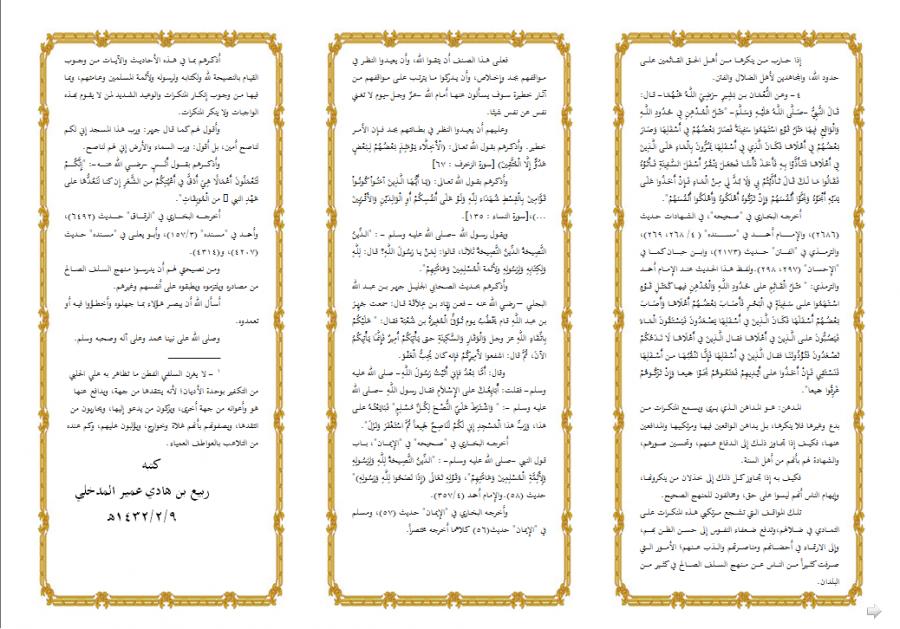 إذا حارب من ينكرها من أهل الحق القائمين على
حدود الله، والمجاهدين لأهل الضلال والفتن.
٤ - وعن النُّعْمَان بن بَشِيرٍ -رَضِيَ اللَّهُ عَنْهُمَا- قال:
قال النَّبِيُّ -صَلَّى اللَّهُ عَلَيْهِ وَسَلَّمَ-: "مَثَلُ الْمُدْهِنِ فِي حُدُودِ اللَّهِ
وَالْوَاقِعِ فِيهَا مَثَلُ قَوْمٍ اسْتَهَمُوا سَفِينَةً فَصَارَ بَعْضُهُمْ فِي أَسْفَلِهَا وَصَارَ
بَعْضُهُمْ فِي أَعْلَاهَا فَكَانَ الَّذِي فِي أَسْفَلِهَا يَمُرُّونَ بِالْمَاءِ عَلَى الَّذِينَ
فِي أَعْلَاهَا فَتَأَذَّوْا بِهِ فَأَخَذَ فَأْسًا فَجَعَلَ يَنْقُرُ أَسْفَلَ السَّفِينَةِ فَأَتَوْهُ
فَقَالُوا مَا لَكَ قَالَ تَأَذَّيْتُمْ بِي وَلَا بُدَّ لِي مِنْ الْمَاءِ فَإِنْ أَخَذُوا عَلَى
يَدَيْهِ أَنْجَوْهُ وَنَجَّوْا أَنْفُسَهُمْ وَإِنْ تَرَكُوهُ أَهْلَكُوهُ وَأَهْلَكُوا أَنْفُسَهُمْ".
أخرجه البخاري في "صحيحه"، في الشهادات حديث
(٢٦٨٦)، والإمام أحمد في "مسنده" (٤/ ٢٦٨، ٢٦٩)،
والترمذي في "الفتن" حديث (٢١٧٣)، وابن حبان كما في
"الإحسان" (٢٩٧، ٢٩٨). ولفظ هذا الحديث عند الإمام أحمد
والترمذي: " مَثَلُ الْقَائِمِ على حُدُودِ اللَّهِ وَالْمُدْهِنِ فيها كَمَثَلِ قَوْمٍ
اسْتَهَمُوا على سَفِينَةٍ في الْبَحْرِ فَأَصَابَ بَعْضُهُمْ أَعْلَاهَا وَأَصَابَ
بَعْضُهُمْ أَسْفَلَهَا فَكَانَ الَّذِينَ في أَسْفَلِهَا يَصْعَدُونَ فَيَسْتَقُونَ الْمَاءَ
فَيَصُبُّونَ على الَّذِينَ في أَعْلَاهَا فقال الَّذِينَ في أَعْلَاهَا لا نَدَعُكُمْ
تَصْعَدُونَ فَتُؤْذُونَنَا فقال الَّذِينَ في أَسْفَلِهَا فَإِنَّا نَنْقُبُهَا من أَسْفَلِهَا
فَنَسْتَقِي فَإِنْ أَخَذُوا على أَيْدِيهِمْ فَمَنَعُوهُمْ نَجَوْا جميعا وَإِنْ تَرَكُوهُمْ
غَرِقُوا جميعا".
المدهن: هو المداهن الذي يرى ويسمع المنكرات من
بدع وغيرها فلا ينكرها، بل يداهن الواقعين فيها ومرتكبيها والمدافعين
عنها، فكيف إذا تجاوز ذلك إلى الدفاع عنهم، وتحسين صورهم،
والشهادة لهم بأنهم من أهل السنة.
فكيف به إذا تجاوز كل ذلك إلى خذلان من ينكروها،
وإيهام الناس أنهم ليسوا على حق، ومخالفون للمنهج الصحيح.
تلك المواقف التي تشجع مرتكبي هذه المنكرات على
التمادي في ضلالهم، وتدفع ضعفاء النفوس إلى حسن الظن بهم،
وإلى الارتماء في أحضانهم ومناصرتهم والذب عنهم؛ الأمور التي
صرفت كثيراً من الناس عن منهج السلف الصالح في كثير من
البلدان.
فعلى هذا الصنف أن يتقوا الله، وأن يعيدوا النظر في
مواقفهم بجد وإخلاص، وأن يدركوا ما يترتب على مواقفهم من
آثار خطيرة سوف يسألون عنها أمام الله -عزّ وجل- يوم لا تغني
نفس عن نفس شيئا.
وعليهم أن يعيدوا النظر في بطانتهم بجد فإن الأمر
خطير. وأذكرهم بقول الله تعالى: (الْأَخِلَّاءُ يَوْمَئِذٍ بَعْضُهُمْ لِبَعْضٍ
عَدُوٌّ إِلَّا الْمُتَّقِينَ) [سورة الزخرف : ٦٧]
وأذكرهم بقول الله تعالى: (يَا أَيُّهَا الَّذِينَ آمَنُوا كُونُوا
قَوَّامِينَ بِالْقِسْطِ شُهَدَاءَ لِلَّهِ وَلَوْ عَلَى أَنْفُسِكُمْ أَوِ الْوَالِدَيْنِ وَالْأَقْرَبِينَ
...)،[سورة النساء : ١٣٥].
وبقول رسول الله -صلى الله عليه وسلم - : "الدِّينُ
النَّصِيحَةُ الدِّينُ النَّصِيحَةُ ثلاثا، قالوا: لِمَنْ يا رَسُولَ اللَّهِ؟ قال: لِلَّهِ
وَلِكِتَابِهِ وَلِرَسُولِهِ وَلأئمة الْمُسْلِمِينَ وَعَامَّتِهِمْ".
وأذكرهم بحديث الصحابي الجليل جرير بن عبد الله
البجلي -رضي الله عنه - فعن زِيَادِ بن عِلَاقَةَ قال: سمعت جَرِيرَ
بن عبد اللَّهِ قام يَخْطُبُ يوم تُوُفِّيَ الْمُغِيرَةُ بن شُعْبَةَ فقال: " عَلَيْكُمْ
بِاتِّقَاءِ اللَّهِ عز وجل وَالْوَقَارِ وَالسَّكِينَةِ حتى يَأْتِيَكُمْ أَمِيرٌ فَإِنَّمَا يَأْتِيكُمُ
الآنَ، ثُمَّ قال: اشفعوا لأَمِيرِكُمْ فإنه كان يُحِبُّ الْعَفْوَ.
وقال: أَمَّا بَعْدُ فإني أَتَيْتُ رَسُولَ اللَّهِ- صلى الله عليه
وسلم- فقلت: أُبَايِعُكَ على الإِسْلَامِ فقال رسول اللَّهِ -صلى الله
عليه وسلم -: " وَاشْتَرَطَ عَلَيَّ النُّصْحَ لِكُلِّ مُسْلِمٍ" فَبَايَعْتُهُ على
هذا، وَرَبِّ هذا الْمَسْجِدِ إني لَكُمْ لَنَاصِحٌ جَمِيعاً ثُمَّ اسْتَغْفَرَ وَنَزَلَ".
أخرجه البخاري في "صحيحه" في "الإيمان"، باب
قول النبي -صلى الله عليه وسلم- : "الدِّينُ النَّصِيحَةُ لِلَّهِ وَلِرَسُولِهِ
وَلِأَئِمَّةِ الْمُسْلِمِينَ وَعَامَّتِهِمْ"، وَقَوْلِهِ تَعَالَى (إِذَا نَصَحُوا لِلَّهِ وَرَسُولِهِ)"
حديث (٥٨)، والإمام أحمد (٣٥٧/٤).
وأخرجه البخاري في "الإيمان" حديث (٥٧)، ومسلم
في "الإيمان" حديث(٥٦) كلاهما أخرجه مختصراً.
أذكرهم بما في هذه الأحاديث والآيات من وجوب
القيام بالنصيحة لله ولكتابه ولرسوله ولأئمة المسلمين وعامتهم، وبما
فيها من وجوب إنكار المنكرات والوعيد الشديد لمن لا يقوم بهذه
الواجبات ولا ينكر المنكرات.
وأقول لهم كما قال جرير: ورب هذا المسجد إني لكم
لناصح أمين، بل أقول: ورب السماء والأرض إني لهم لناصح.
وأذكرهم بقول أنس -رضي الله عنه-: "إِنَّكُمْ
لَتَعْمَلُونَ أَعْمَالًا هِيَ أَدَقُّ فِي أَعْيُنِكُمْ مِنَ الشَّعَرِ إِن كنا لَنَعُدُّهَا على
عَهْدِ النبي من الْمُوبِقَاتِ".
أخرجه البخاري في "الرقاق" حديث (٦٤٩٢)،
وأحمد في "مسنده" (١٥٧/٣)، وأبو يعلى في "مسنده" حديث
(٤٢٠٧)، و(٤٣١٤).
ومن نصيحتي لهم أن يدرسوا منهج السلف الصالح
من مصادره ويلتزموه ويطبقوه على أنفسهم وغيرهم.
أسأل الله أن يبصر هؤلاء بما جهلوه وأخطؤوا فيه أو
تعمدوه.
وصلى الله على نبينا محمد وعلى آله وصحبه وسلم.
١ - لا يغرن السلفي الفطن ما تظاهر به علي الحلبي
من التكفير بوحدة الأديان؛ لأنه ينتقدها من جهة، ويدافع عنها
هو وأعوانه من جهة أخرى، ويزكون من يدعو إليها، ويحاربون من
انتقدها، ويصفونهم بأنهم غلاة وخوارج، ويؤلبون عليهم، وكم عنده
من التلاعب بالعواطف العمياء .
كتبه
ربيع بن هادي عمير المدخلي
١٤٣٢/٢/٩هـ